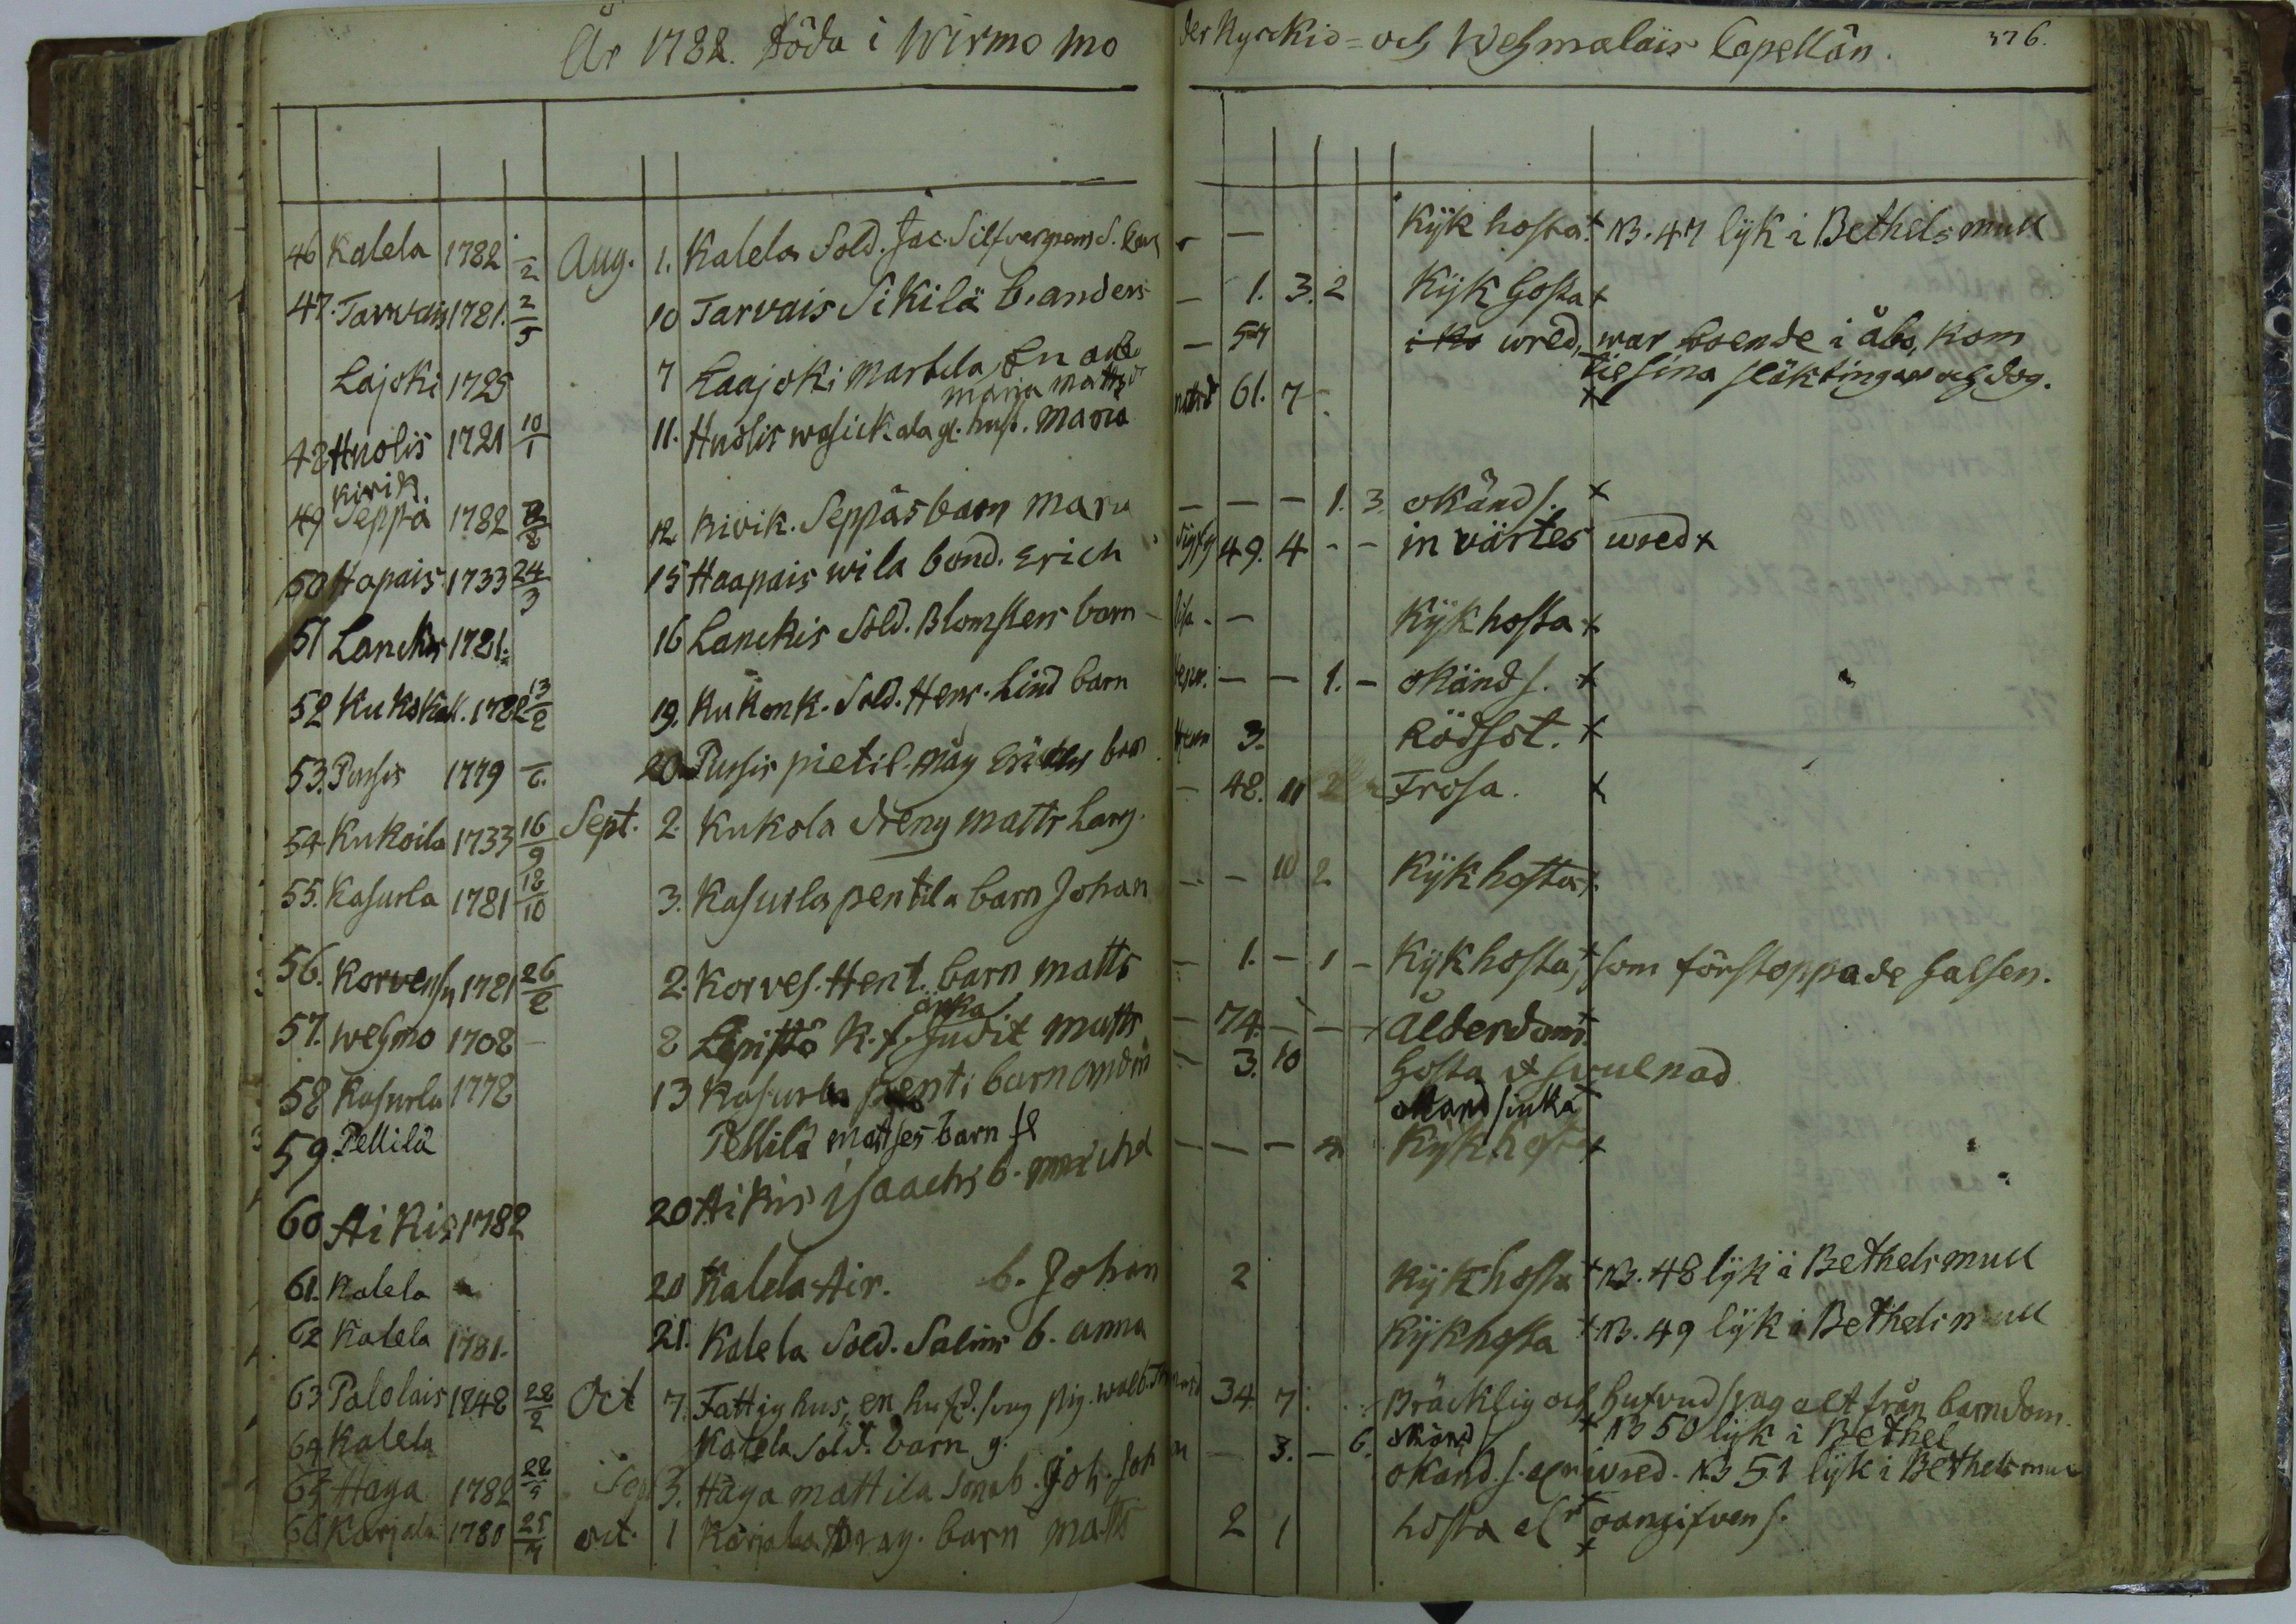 År 1782. Döda i Wirmo mo der Kyrckio= och Wehmalais Capellân. 376.
46 Kalela 1782 2 Aug. 1. Kalela Sold. Jac. S. — Kÿk hosta. + NB. 47 lÿk i Bethels mull
47. Tarvais 1781. 2/5 10 Tarvais Sikilä b. anders — 1. 3. 2 Kÿk hosta +
Lajoki 1725 7 Laajoki Martela — 57 wred, war boende i åbo, kom
maria matts til sina släktingar och dog.
48 Huolis 1721 10/1 11. Huolis gl. hust. Maria 61. 7 - +
Kivik.
49 Seppä 1782 12 Kivik. Seppäs barn Maria — — — 1. 3. okänd s. +
50 Hapais 1733 24/3 15 Haapais wila bond. Erich 49. 4 - - in värtes wred +
51 Lanckis 1781. 16 Lanckis Sold. Blomsters barn Lisa - — Kÿk hosta +
52 Kukokall. 1782 13/2 19. Kukonk. Sold. Henr. Lind barn Henr. — — 1. — okänd s. +
53. Pursis 1779 6. 20. Pursis pietil. måg Erichs barn 3. Rödsot. +
54 Kukoila 1733 16/9 Sept. 2. Kukola dreng matts Larsj. — 48. 11 Frosa. +
55. Kasurla 1781 12/10 3. Kasurla pentila barn Johan — — 10 2 Kÿk hosta +
56. 1781 26/2 2. Korves. Hent. barn matts — 1. — 1 — Kÿk hosta, + som förstoppade halsen.
änka
57. Wehmo 1708 — 8 Lepistö K. f. Judit matts — 74. — — Ålderdom. +
58 Kasurla 1778 13 Kasurla penti barn — 3. 10 hosta & svulnad
59. Pellilä Pellilä matses barn okänd siuka +
60 Aikis 1782 20 Aikis isaachs b. michel — — — 4. Kÿk hosta +
61. Kalela 20 Kalela Air. b. Johan 2 Kÿk hosta + NB. 48 lÿk i Bethels mull
62 Kalela 1781. 21. Kalela Sold. Salins b. anna Kÿkhosta + NB. 49 lÿk i Bethels mull
63 Palolais 1748 22/2 Oct 7. Fattighus, en pig. 34 7. Bräcklig och hufvud svag alt från barndom.
64 Kalela Kalela Sold. barn g. okänd s + NB 50 lÿk i Bethel
65 Haga 1782 Sep 3. Haga mattila Joh. — 3. — 6. okänd. s. wred. NB 51 lÿk i Bethels mull
66 Karjala 1780 25/4 oct. 1 Karjala Drag. barn matts 2 1 hosta oangifven s. +